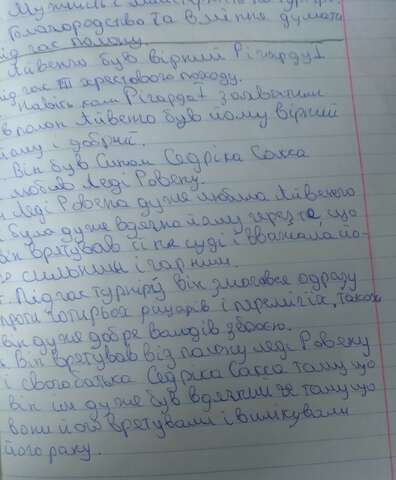 Мужність і майстерність на турнірі.
благородство та вміння думати
під час полону.
Айвенго був вірний Рігарду I
під час III хрестового походу.
Навіть коли Рігарда I захватили
в полон Айвенго був йому вірний
йому і добрий.
Він був Сином Седріка Сакса
любив Леді Ровену.
Леді Ровена дуже любила Айвенго
Була дуже вдячна йому через те, що
він врятував її на суді і вважала йо-
го сильним і гарним.
Під час турніру він змагався одразу
проти чотирьох рицарів і переміг їх, також
він дуже добре володів зброєю.
Він врятував віз полону леді Ровену
і свого батька Седріка Сакса тому що
він їм дуже був вдячний за тому що
вони його врятували і вилікували
його рану.